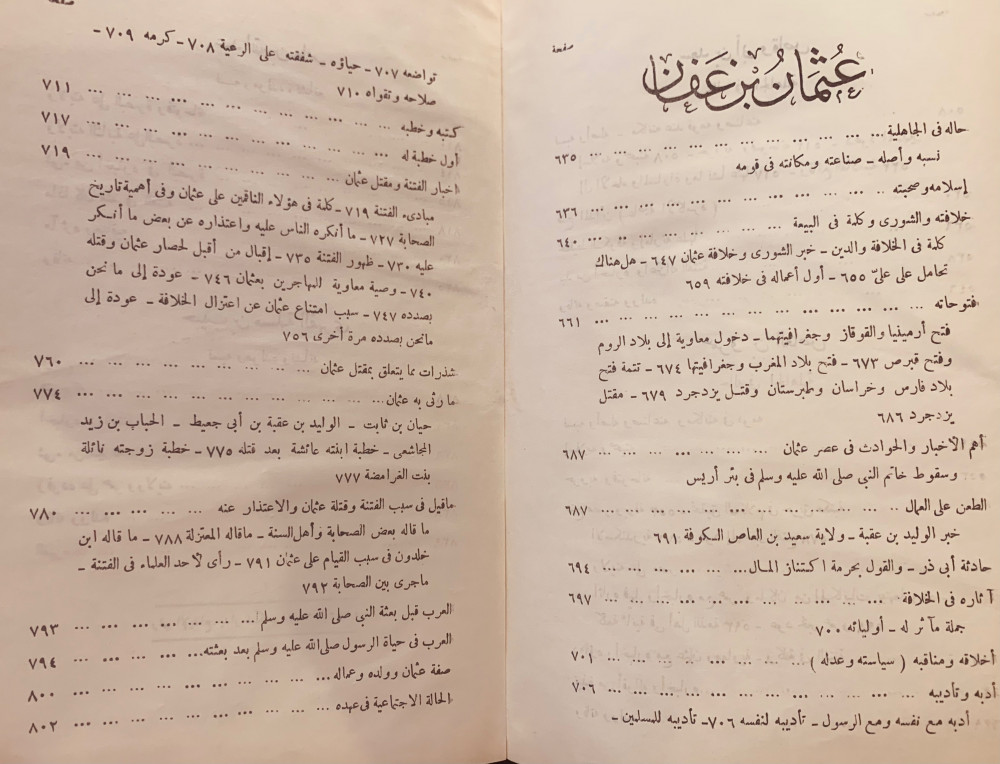 صفحة
عثمان بن عفان
حاله فى الجاهلية ... ... ... ... ... ... ... ... ... ٦٣٥
نسبه وأصله ــ صناعته ومكانته فى قومه
إسلامه وصحبته ... ... ... ... ... ... ... ... ... ٦٣٦
خلافته والشورى وكلمة فى البيعة ... ... ... ... ... ... ٦٤٠
كلمة فى الخلافة والدين ــ خبر الشورى وخلافة عثمان ٦٤٧ ــ هل هناك
تحامل على علىّ ٦٥٥ ــ أول أعماله فى خلافته ٦٥٩
فتوحاته ... ... ... ... ... ... ... ... ... ... ٦٦١
فتح أرمينيا والقوقاز وجغرافيتهما ــ دخول معاوية إلى بلاد الروم
وفتح قبرص ٦٧٣ ــ فتح بلاد المغرب وجغرافيتها ٦٧٤ ــ تتمة فتح
بلاد فارس وخراسان وطبرستان وقتل يزدجرد ٦٧٩ ــ مقتل
يزدجرد ٦٨٦
أهم الأخبار والحوادث فى عصر عثمان ... ... ... ... ... ٦٨٧
وسقوط خاتم النبي صلى الله عليه وسلم فى بئر أريس
الطعن على العمال ... ... ... ... ... ... ... ... ٦٨٧
خبر الوليد بن عقبة ــ ولاية سعيد بن العاص السكوفة ٦٩١
حادثة أبى ذر ــ والقول بحرمة اكتناز المال ... ... ... ... ٦٩٤
آثاره فى الخلافة ... ... ... ... ... ... ... ... ... ٦٩٧
جملة مآثر له ــ أولياته ٧٠٠
أخلاقه ومناقبه ( سياسته وعدله ) ... ... ... ... ... ... ٧٠١
أدبه وتأديبه ... ... ... ... ... ... ... ... ... ٧٠٦
أدبه مع نفسه ومع الرسول ــ تأديبه لنفسه ٧٠٦ ــ تأديبه للمسلمين ــ
تواضعه ٧٠٧ ــ حياؤه ــ شفقته على الرعية ٧٠٨ ــ كرمه ٧٠٩ ــ
صلاحه وتقواه ٧١٠
كتبه وخطبه ... ... ... ... ... ... ... ... ... ٧١١
أول خطبة له ... ... ... ... ... ... ... ... ... ٧١٧
اخبار الفتنة ومقتل عثمان ... ... ... ... ... ... ... ٧١٩
مبادىء الفتنة ٧١٩ ــ كلمة فى هؤلاء الناقمين على عثمان وفى أهمية تاريخ
الصحابة ٧٢٧ ــ ما أنكره الناس عليه واعتذاره عن بعض ما أنكر
عليه ٧٣٠ ــ ظهور الفتنة ٧٣٥ ــ إقبال من أقبل لحصار عثمان وقتله
٧٤٠ ــ وصية معاوية للمهاجرين بعثمان ٧٤٦ ــ عودة إلى ما نحن
بصدده ٧٤٧ ــ سبب امتناع عثمان عن اعتزال الخلافة ــ عودة إلى
مانحن بصدده مرة أخرى ٧٥٦
شذرات مما يتعلق بمقتل عثمان ... ... ... ... ... ... ٧٦٠
ما رثى به عثمان ... ... ... ... ... ... ... ... ٧٧٤
حيان بن ثابت ــ الوليد بن عقبة بن أبى جعيط ــ الحباب بن زيد
المجاشعى ــ خطبة ابنته عائشة بعد قتله ٧٧٥ ــ خطبة زوجته نائلة
بنت الفرامضة ٧٧٧
ماقيل فى سبب الفتنة وقتلة عثمان والاعتذار عنه ... ... ... ... ٧٨٠
ما قاله بعض الصحابة وأهل السنة ــ ماقاله المعتزلة ٧٨٨ ــ ما قاله ابن
خلدون فى سبب القيام على عثمان ٧٩١ ــ رأى لأحد العلماء فى الفتنة ــ
ماجرى بين الصحابة ٧٩٢
العرب قبل بعثة النبي صلى الله عليه وسلم ... ... ... ... ... ٧٩٣
العرب فى حياة الرسول صلى الله عليه وسلم بعد بعثته ... ... ... ... ٧٩٤
صفة عثمان وولده وعماله ... ... ... ... ... ... ... ٨٠٠
الحالة الاجتماعية فى عهده ... ... ... ... ... ... ... ٨٠٢